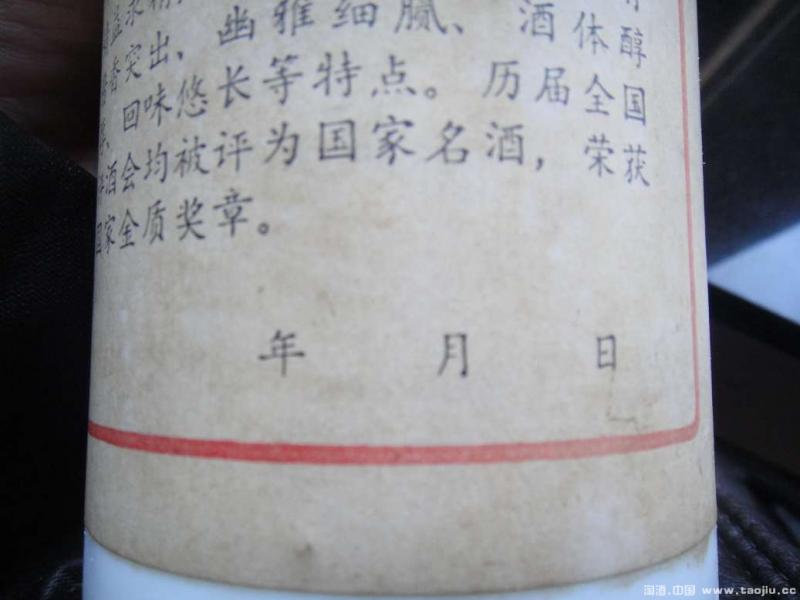 突出、幽雅细腻、酒体醇
回味悠长等特点。历届全国
酒会均被评为国家名酒，荣获
国家金质奖章。
年 月 日
淘酒.中国 www.taojiu.cc